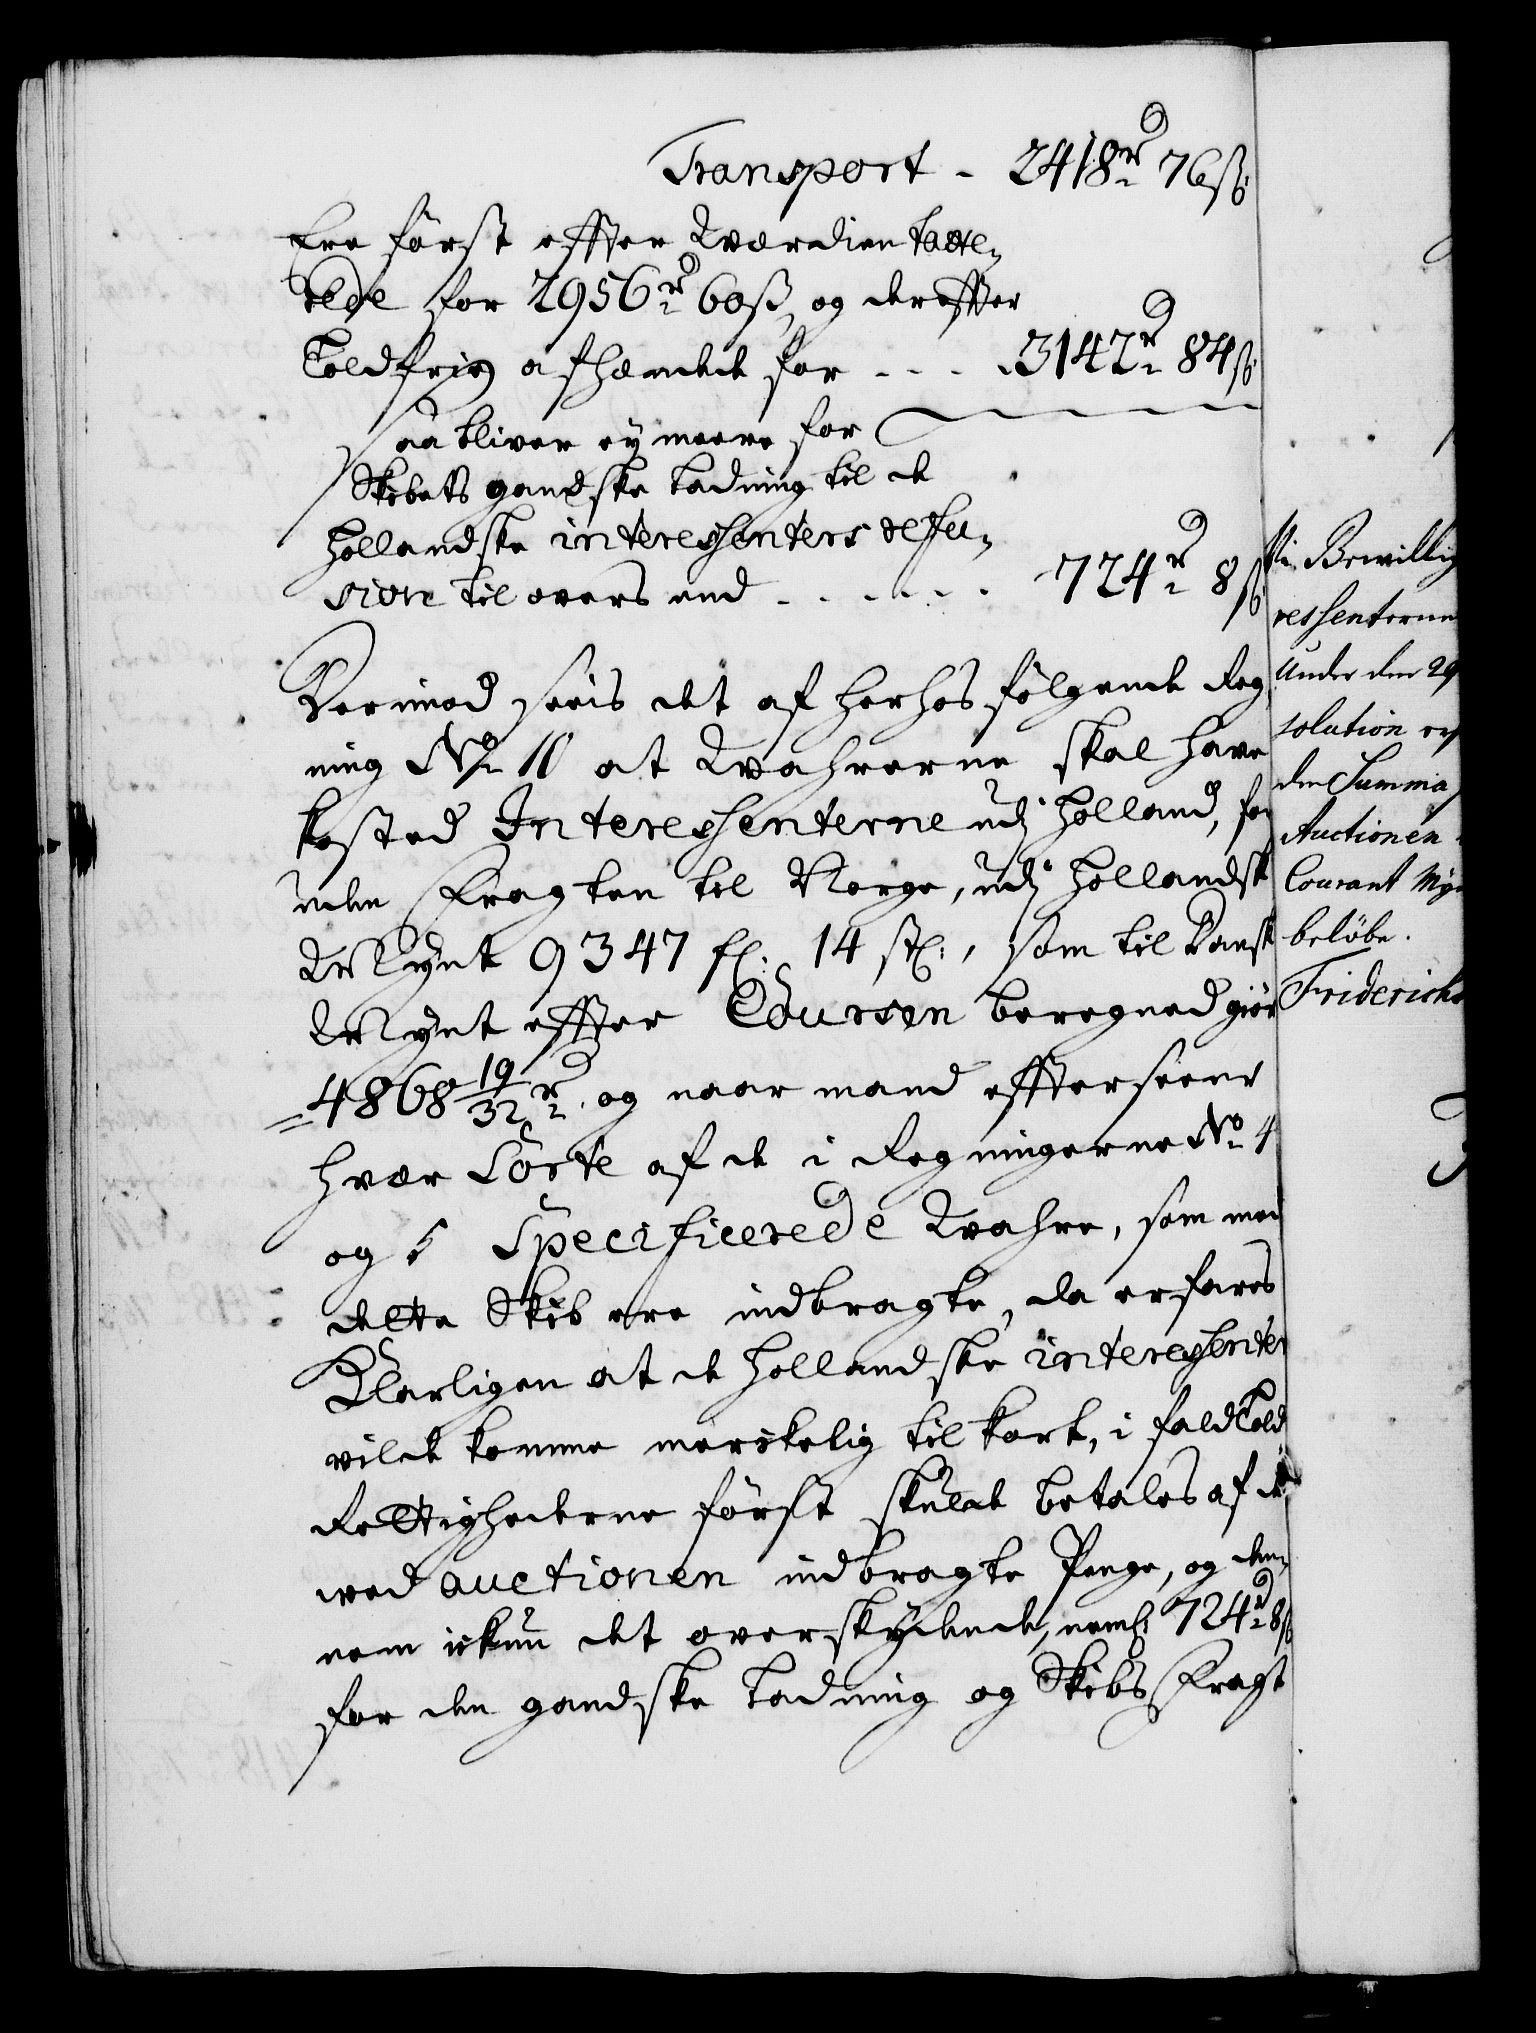 Transport - 2418 rd 76 ß
Ere först effter Wærdien taxe-
rede for 2956 rd 60 ß, og dereffter
Toldfrig afhændede for - - - 3142 rd 84 ß
Saa bliver ey meere for
Skibets gandske Ladning til de
Hollandske interessenters refu-
sion til overs end - - - - - - 724 rd 8 ß
Derimod sees det af herhos fölgende Reg
ning No 10 at Wahrerne skal have
kosted Interessenterne udj Holland, for
uden Fragten til Norge, udj Hollandsk
Mynt 9347 fl: 14 st:, som til Dansk
Mynt effter Coursen beregned giör
4868 19/32 rd. og naar mand effterseer
hver Sorte af de i Regningerne No 4
og 5 Specificerede Wahre, som med
dette Skib ere indbragte, da erfares
Klarligen at de Hollandske interessenter
vilde komme merckelig til kort, i fald Told
Rettighederne först skulde betales af de
ved auctionen indbragte Penge, og den-
nem ickun det overskydende, neml: 724 rd 8 ß
for den gandske Ladning og Skibs Fragt
Bewillig
ressenterne
Under den 29
solution
den Summa
Auctionen
Courant
belöbe.
Friderichs